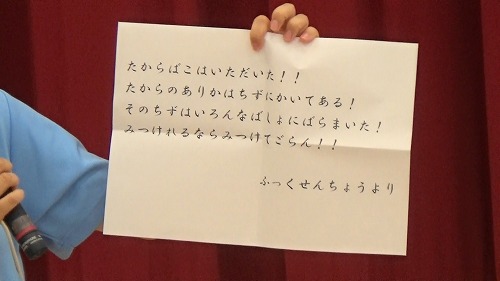 たからばこはいただいた！！
たからのありかはちずにかいてある！
そのちずはいろんなばしょにばらまいた！
みつけれるならみつけてごらん！！
ふっくせんちょうより